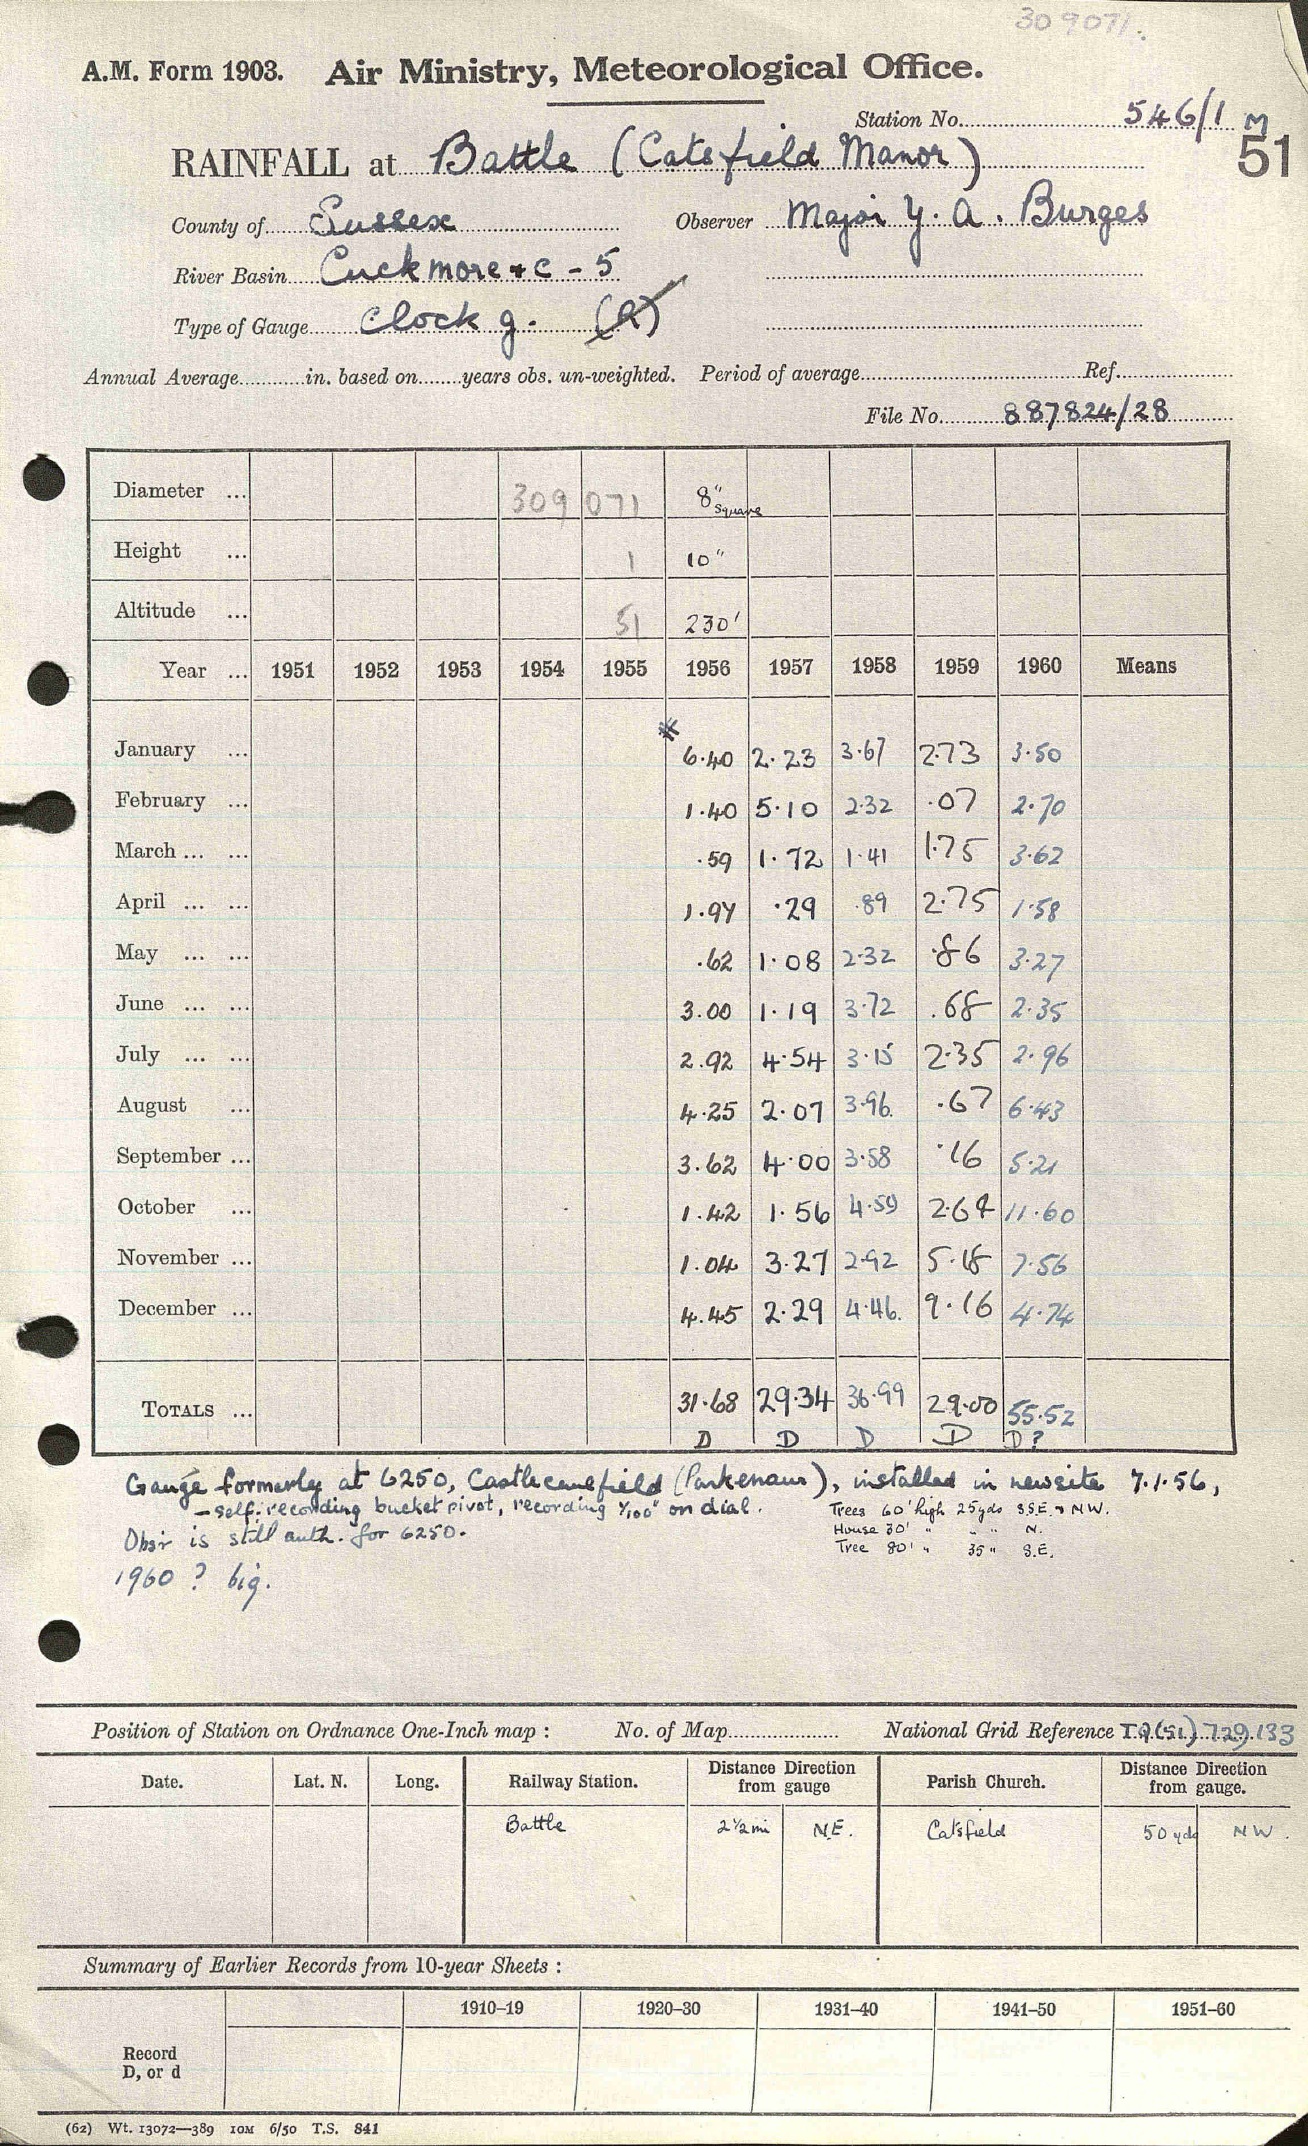 309071.
A.M. Form 1903. Air Ministry, Meteorological Office.
Station No. 546/1 M
51
RAINFALL at Battle (Catsfield Manor)
County of Sussex Observer Major Y. A. Burges
River Basin Cuckmore + c - 5
Type of Gauge Clock g. (R)
Annual Average in. based on years obs. un-weighted. Period of average Ref.
File No. 887824/28
Diameter ... 309 071 8" square
Height ... 1 10"
Altitude ... 51 230'
Year ... 1951 1952 1953 1954 1955 1956 1957 1958 1959 1960 Means
*
January ... 6.40 2.23 3.67 2.73 3.50
February ... 1.40 5.10 2.32 .07 2.70
March ... ... .59 1.72 1.41 1.75 3.62
April ... ... 1.97 .29 .89 2.75 1.58
May ... ... .62 1.08 2.32 .86 3.27
June ... ... 3.00 1.19 3.72 .68 2.35
July ... ... 2.92 4.54 3.15 2.35 2.96
August ... 4.25 2.07 3.96. .67 6.43
September ... 3.62 4.00 3.58 .16 5.21
October ... 1.42 1.56 4.59 2.64 11.60
November ... 1.04 3.27 2.92 5.18 7.56
December ... 4.45 2.29 4.46. 9.16 4.74
TOTALS ... 31.68 29.34 36.99 29.00 55.52
D D D D D?
Gauge formerly at 6250, Castlecaulfield (Parkenaur), installed in new site 7.1.56,
- self-recording bucket pivot, recording 1/100" on dial. Trees 60' high 25 yds S.S.E. & NW.
House 30' " " " N.
Obs'r is still auth. for 6250. Tree 80' " 35 " S.E.
1960 ? big.
Position of Station on Ordnance One-Inch map : No. of Map National Grid Reference TQ(51) 729.133
Date. Lat. N. Long. Railway Station. Distance Direction from gauge Parish Church. Distance Direction from gauge.
Battle 2½mi N.E. Catsfield 50 yds NW.
Summary of Earlier Records from 10-year Sheets :
1910–19 1920–30 1931–40 1941–50 1951–60
Record
D, or d
(62) Wt. 13072—389 10M 6/50 T.S. 841